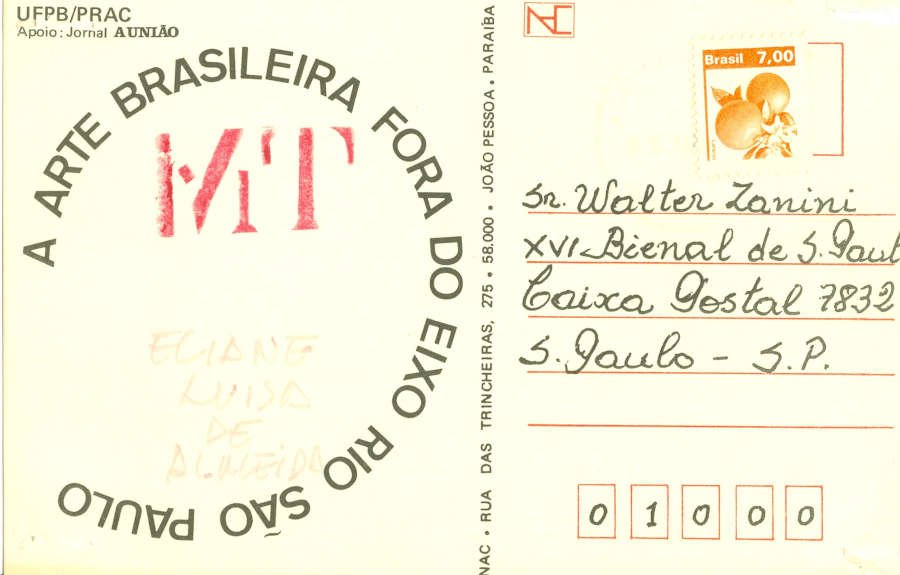 UFPB/PRAC
Apoio: Jornal A UNIÃO
A ARTE BRASILEIRA FORA DO EIXO RIO SÃO PAULO
MT
ELIANE
LUISA
DE
ALMEIDA
NAC • RUA DAS TRINCHEIRAS, 275 • 58.000 • JOÃO PESSOA • PARAÍBA
Brasil 7,00
Sr. Walter Zanini
XVI Bienal de S. Paul
Caixa Postal 7832
S. Paulo - S.P.
0 1 0 0 0